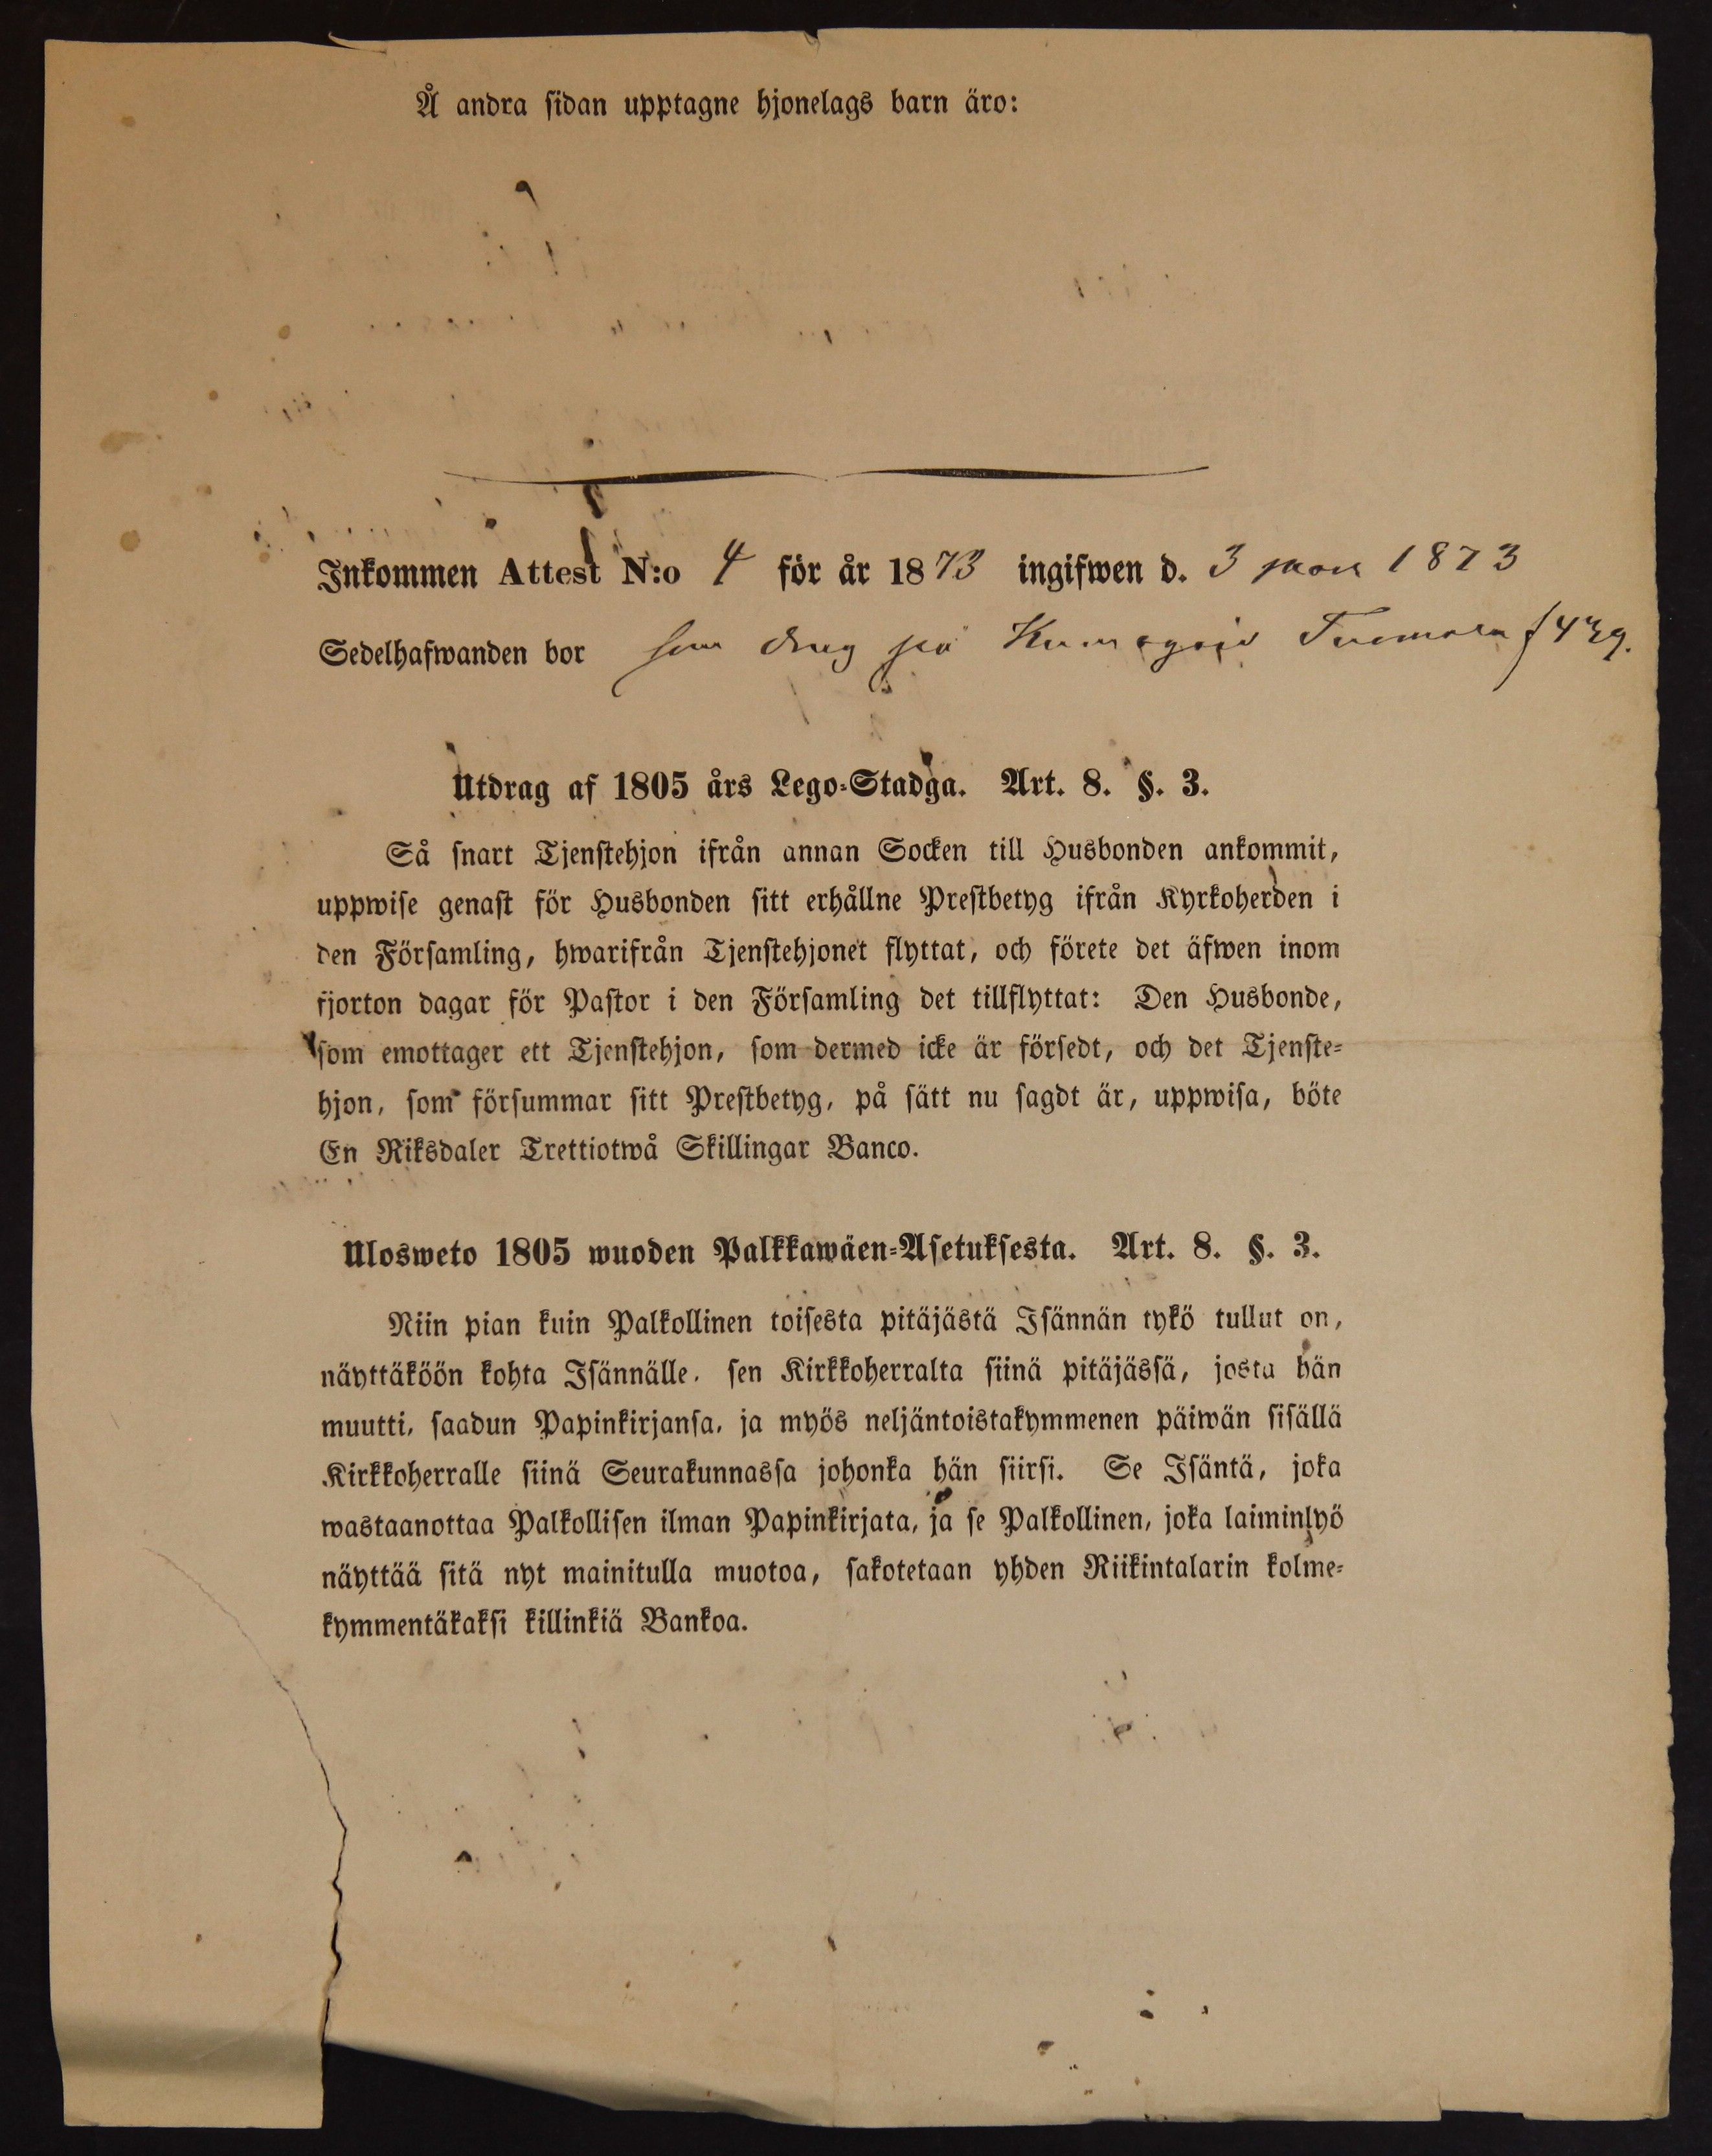 Å andra sidan upptagne hjonelags barn äro:
Inkommen Attest N:o 4 för år 1873 ingifwen d. 3 1873
Sedelhafwanden bor som dreng på Tuomola f 439.
Utdrag af 1805 års Lego-Stadga. Art. 8. §. 3.
Så snart Tjenstehjon ifrån annan Socken till Husbonden ankommit,
uppwise genast för Husbonden sitt erhållne Prestbetyg ifrån Kyrkoherden i
den Församling, hwarifrån Tjenstehjonet flyttat, och förete det äfwen inom
fjorton dagar för Pastor i den Församling det tillflyttat: Den Husbonde,
som emottager ett Tjenstehjon, som dermed icke är försedt, och det Tjenste-
hjon, som försummar sitt Prestbetyg, på sätt nu sagdt är, uppwisa, böte
En Riksdaler Trettiotwå Skillingar Banco.
Ulosweto 1805 wuoden Palkkawäen-Asetuksesta. Art. 8. §. 3.
Niin pian kuin Palkollinen toisesta pitäjästä Isännän tykö tullut on,
näyttäköön kohta Isännälle, sen Kirkkoherralta siinä pitäjässä, josta hän
muutti, saadun Papinkirjansa, ja myös neljäntoistakymmenen päiwän sisällä
Kirkkoherralle siinä Seurakunnassa johonka hän siirsi. Se Isäntä, joka
wastaanottaa Palkollisen ilman Papinkirjata, ja se Palkollinen, joka laiminlyö
näyttää sitä nyt mainitulla muotoa, sakotetaan yhden Riikintalarin kolme-
kymmentäkaksi killinkiä Bankoa.